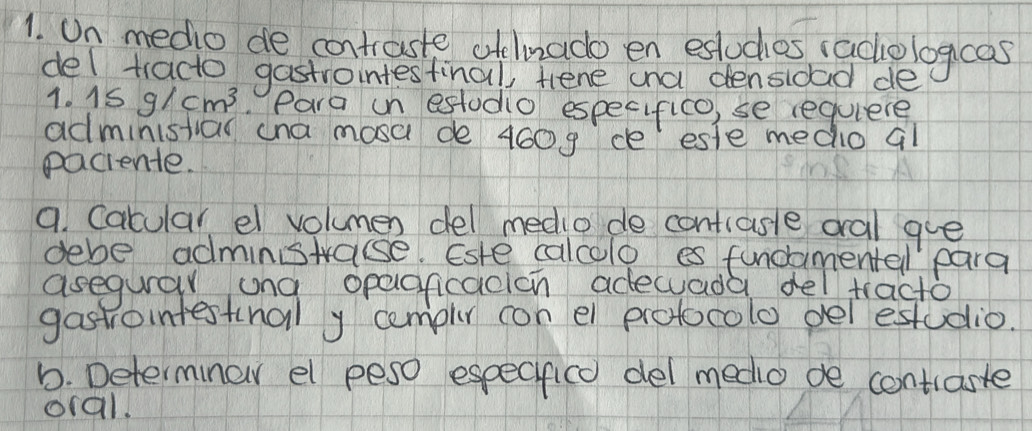 1. Un medio de contraste utilizado en estudios radiologicos
del tracto gastrointestinal, tiene una densidad de
1.15 g/cm³. Para un estudio especifico, se requiere
administrar una masa de 460g de este medio al
paciente.
a. Calcular el volumen del medio de contraste oral que
debe administrarse. Este calculo es fundamental para
asegurar una opacificación adecuada del tracto
gastrointestinal y cumplir con el protocolo del estudio.
b. Determinar el peso especifico del medio de contraste
oral.